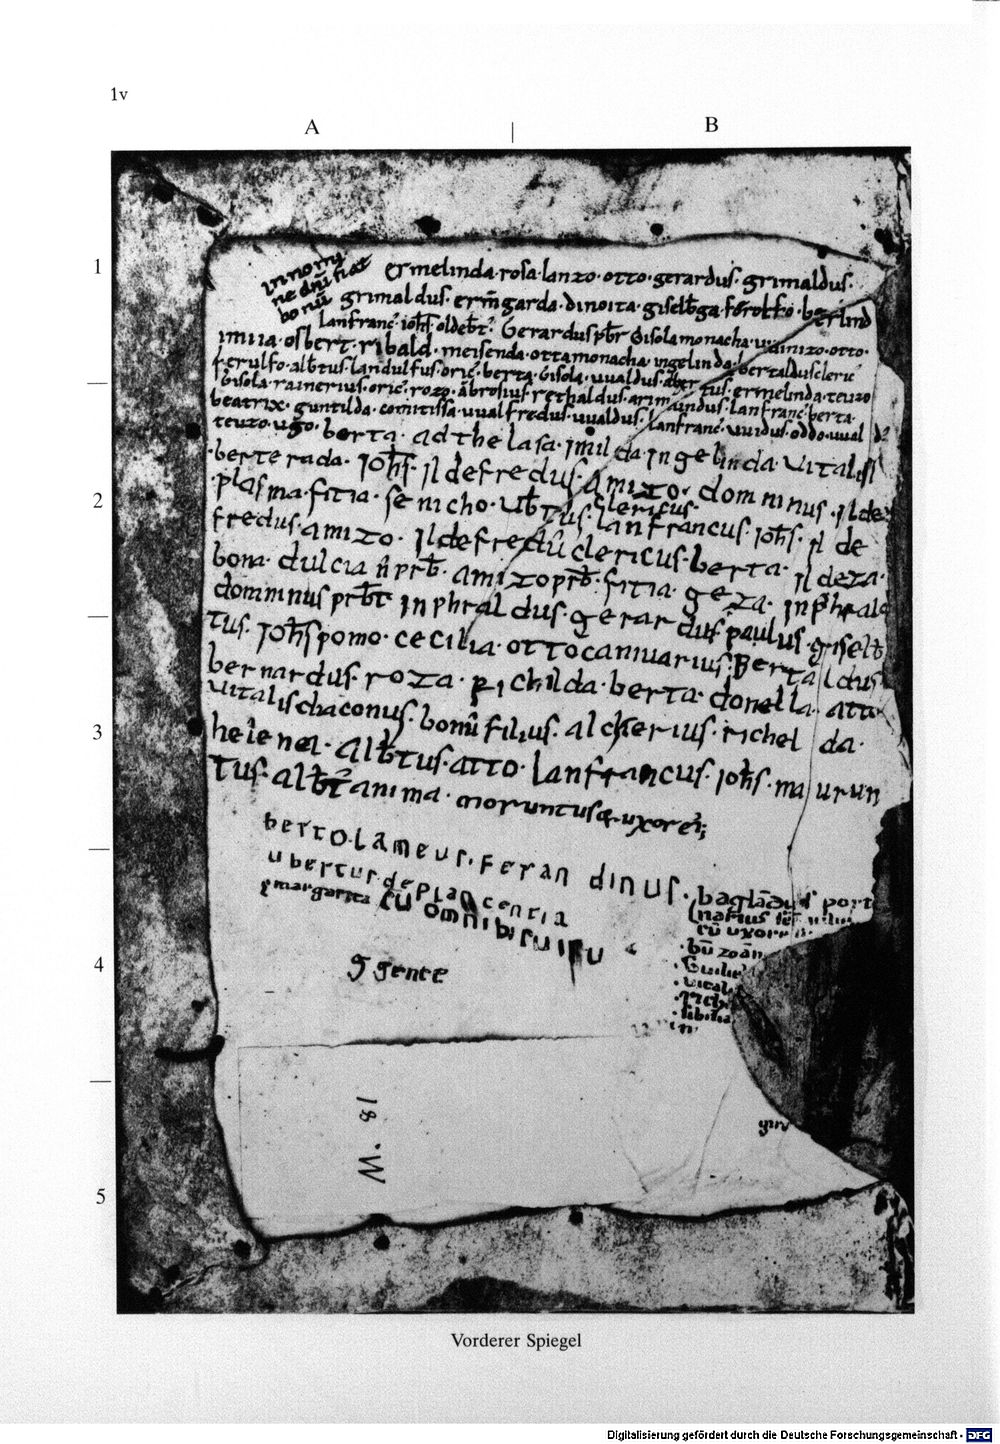 1v
A
B
1
2
3
4
5
in nomi
ne dñi fiat
bonū
ermelinda · rosa · lanzo · otto · gerardus · grimaldus ·
grimaldus · erm̄garda · dinoita · giselb̄ga · ferolfo · berlind
lanfranc̄ · ioh̄s · oldeb̄t · Gerardus pb̄r Gisola monacha · uuinizo · otto ·
imiia · osbert · ribald · meisenda · otta monacha · ingelinda · bertaldus cleric̄
ferulfo · alb̄tus · landulfus · oric̄ · berta · Gisola · uualdus · āber tus · ermelinda · teuzo
Gisola · rainerius · oric̄ · rozo · ābrosius · rethaldus · arim undus · lanfranc̄ · berta ·
beatrix · guntilda · comitissa · uualfredus · uualdus · lanfranc̄ · uuidus · oddo · uual
teuzo · ugo · berta · adthelasa · imil da ingelinda · vitalis
· berterada · ioh̄s · ildefredus · amizo · dominus · ilde
clericus ·
· plasma · fitia · senicho · ub̄tus · lanfrancus · ioh̄s · il de
fredus · amizo · ildefredū clericus · berta · ildeza ·
bona · dulcia n̄ prb̄ · amizo prb̄ · fitia · geza · inphrald
dominus prb̄t inphraldus · gerardus · paulus · griselb̄
tus · ioh̄s pomo · cecilia · otto canuarius · Bertaldus
bernardus · roza · Richilda · berta · donella · atto
vitalis chaconus · bonū filius · alcherius · richel da ·
helena · alb̄tus · atto · lanfrancus · ioh̄s · ma urun
tus · alb̄t anima · moruntus & uxor ei;
bertolameus · ferandinus ·
ubertus · de placencia
& margarita cū omnib; sui
gente
baglād port
narius
cū uxore
· bū zoān
· Guilie
· vital
· Riche
· sibilia
in
18 · W
Vorderer Spiegel
Digitalisierung gefördert durch die Deutsche Forschungsgemeinschaft - DFG